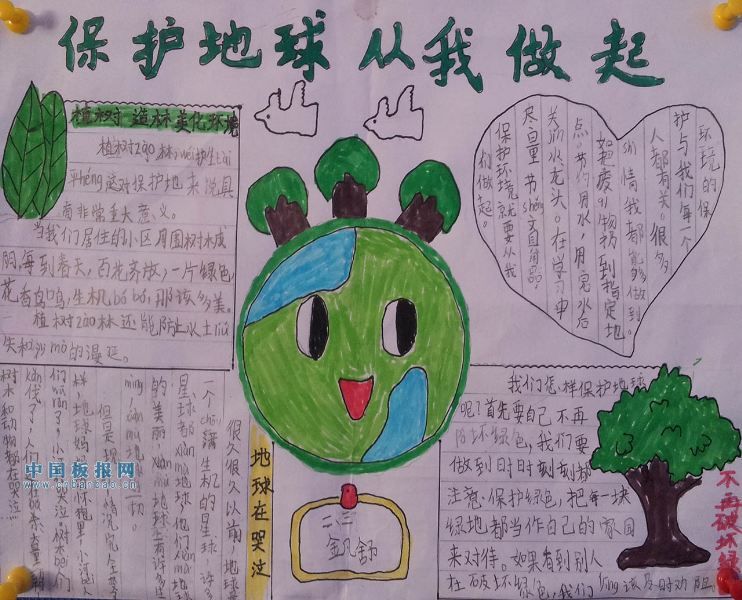 保护地球从我做起
植树造林美化环境
植树zào林,wéi护生tài
平héng这对保护地球来说具
有非常重大意义。
当我们居住的小区周围树木成
阴,每到春天,百花齐放,一片绿色,
花香鸟鸣,生机bó bó,那该多美。
植树zào林还能防止水土liú
失和 mò的漫延。
环境的保
护与我们每一个
人都有关。很多
shì情我都能够做到。
如把废qì物扔到指定地
点。节约用水,用完水后
关水龙头。在学习中
尽量节shěng文具用品。
保护环境就要从我
们做起。
地球在哭泣
很久很久以前,地球是
一个chōng满生机的星球,许多
星球都xiàn mù地球,他们xiàn mù地球
的美丽,xiàn mù地球上有许多生
二、二
金凡舒
我们怎样保护地球
呢?首先要自己不再
破坏绿色,我们要
做到时时刻刻都
注意保护绿色,把每一块
绿地都当作自己的家园
来对待。如果看到别人
在破坏绿色,我们yīng该及时劝阻
不再破坏绿
中国板报网
www.cnbanbao.cn